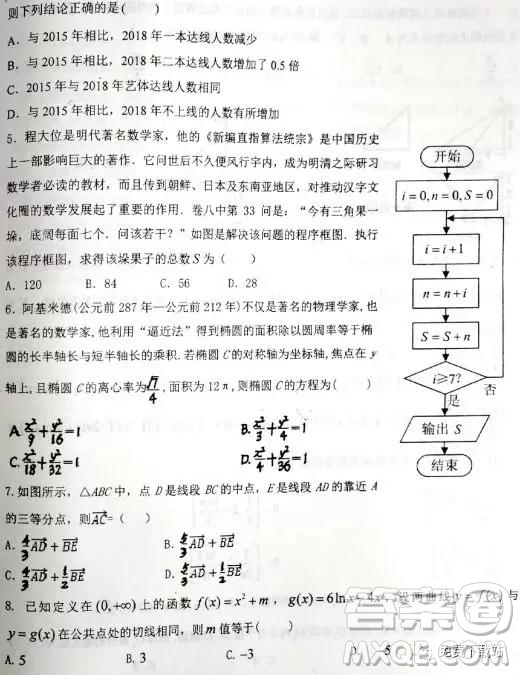 则下列结论正确的是(    )
A. 与 2015 年相比，2018 年一本达线人数减少
B. 与 2015 年相比，2018 年二本达线人数增加了 0.5 倍
C. 与 2015 年相比，2018 年艺体达线人数相同
D. 与 2015 年相比，2018 年不上线的人数有所增加
5. 程大位是明代著名数学家，他的《新编直指算法统宗》是中国历史
上一部影响巨大的著作．它问世后不久便风行宇内，成为明清之际研习
数学者必读的教材，而且传到朝鲜、日本及东南亚地区，对推动汉字文
化圈的数学发展起了重要的作用．卷八中第 33 问是：“今有三角果一
垛，底阔每面七个．问该若干？”如图是解决该问题的程序框图．执行
该程序框图，求得该垛果子的总数 S 为（    ）
A. 120    B. 84    C. 56    D. 28
6. 阿基米德(公元前 287 年—公元前 212 年)不仅是著名的物理学家，也
是著名的数学家，他利用“逼近法”得到椭圆的面积除以圆周率等于椭
圆的长半轴长与短半轴长的乘积．若椭圆 C 的对称轴为坐标轴，焦点在 y
轴上，且椭圆 C 的离心率为 √7/4，面积为 12π，则椭圆 C 的方程为(    )
A. x²/9+y²/16=1    B. x²/3+y²/4=1
C. x²/18+y²/32=1    D. x²/4+y²/36=1
7. 如图所示，△ABC 中，点 D 是线段 BC 的中点，E 是线段 AD 的靠近 A
的三等分点，则 AC=（    ）
A. 4/3 AD + BE    B. 5/3 AD + BE
C. 4/3 AD + 1/2 BE    D. 5/3 AD + 1/2 BE
8. 已知定义在 (0,+∞) 上的函数 f(x)=x²+m，g(x)=6ln x-4x，设两曲线 y=f(x) 与
y=g(x) 在公共点处的切线相同，则 m 值等于(    )
A. 5    B. 3    C. -3    D. -5
开始
i=0,n=0,S=0
i=i+1
n=n+i
S=S+n
i≥7?
否
是
输出 S
结束
答案圈